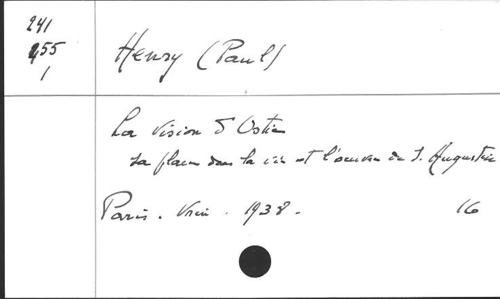 241
455
1
Henry (Paul)
La Vision d'Ostie
sa place dans la vie et l'œuvre de S. Augustin
Paris. Vrin. 1938. 16